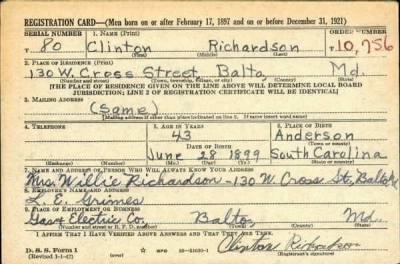 REGISTRATION CARD—(Men born on or after February 17, 1897 and on or before December 31, 1921)
SERIAL NUMBER 1. NAME (Print) ORDER NUMBER
T 80 Clinton Richardson T10,756
(First) (Middle) (Last)
2. PLACE OF RESIDENCE (Print)
130 W. Cross Street, Balto, Md.
(Number and street) (Town, township, village, or city) (County) (State)
[THE PLACE OF RESIDENCE GIVEN ON THE LINE ABOVE WILL DETERMINE LOCAL BOARD
JURISDICTION; LINE 2 OF REGISTRATION CERTIFICATE WILL BE IDENTICAL]
3. MAILING ADDRESS
(Same)
[Mailing address if other than place indicated on line 2. If same insert word same]
4. TELEPHONE 5. AGE IN YEARS 6. PLACE OF BIRTH
43 Anderson
DATE OF BIRTH (Town or county)
June 28 1899 South Carolina
(Exchange) (Number) (Mo.) (Day) (Yr.) (State or country)
7. NAME AND ADDRESS OF PERSON WHO WILL ALWAYS KNOW YOUR ADDRESS
Mrs. Willie Richardson - 130 W. Cross St. Balto
8. EMPLOYER'S NAME AND ADDRESS
L. E. Grimes
9. PLACE OF EMPLOYMENT OR BUSINESS
Gas & Electric Co. Balto. Md.
(Number and street or R. F. D. number) (Town) (County) (State)
I AFFIRM THAT I HAVE VERIFIED ABOVE ANSWERS AND THAT THEY ARE TRUE.
D. S. S. Form 1
(Revised 1-1-42) Clinton Richardson
(Registrant's signature)